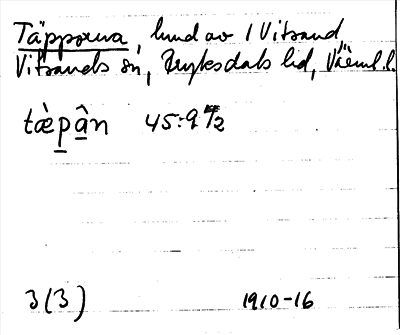 Täpporna, hmd av 1 Vitsand
Vitsands sn, Fryksdals hd, Värml. l.
tæ̀pân 45:9 7/2
3(3) 1910-16